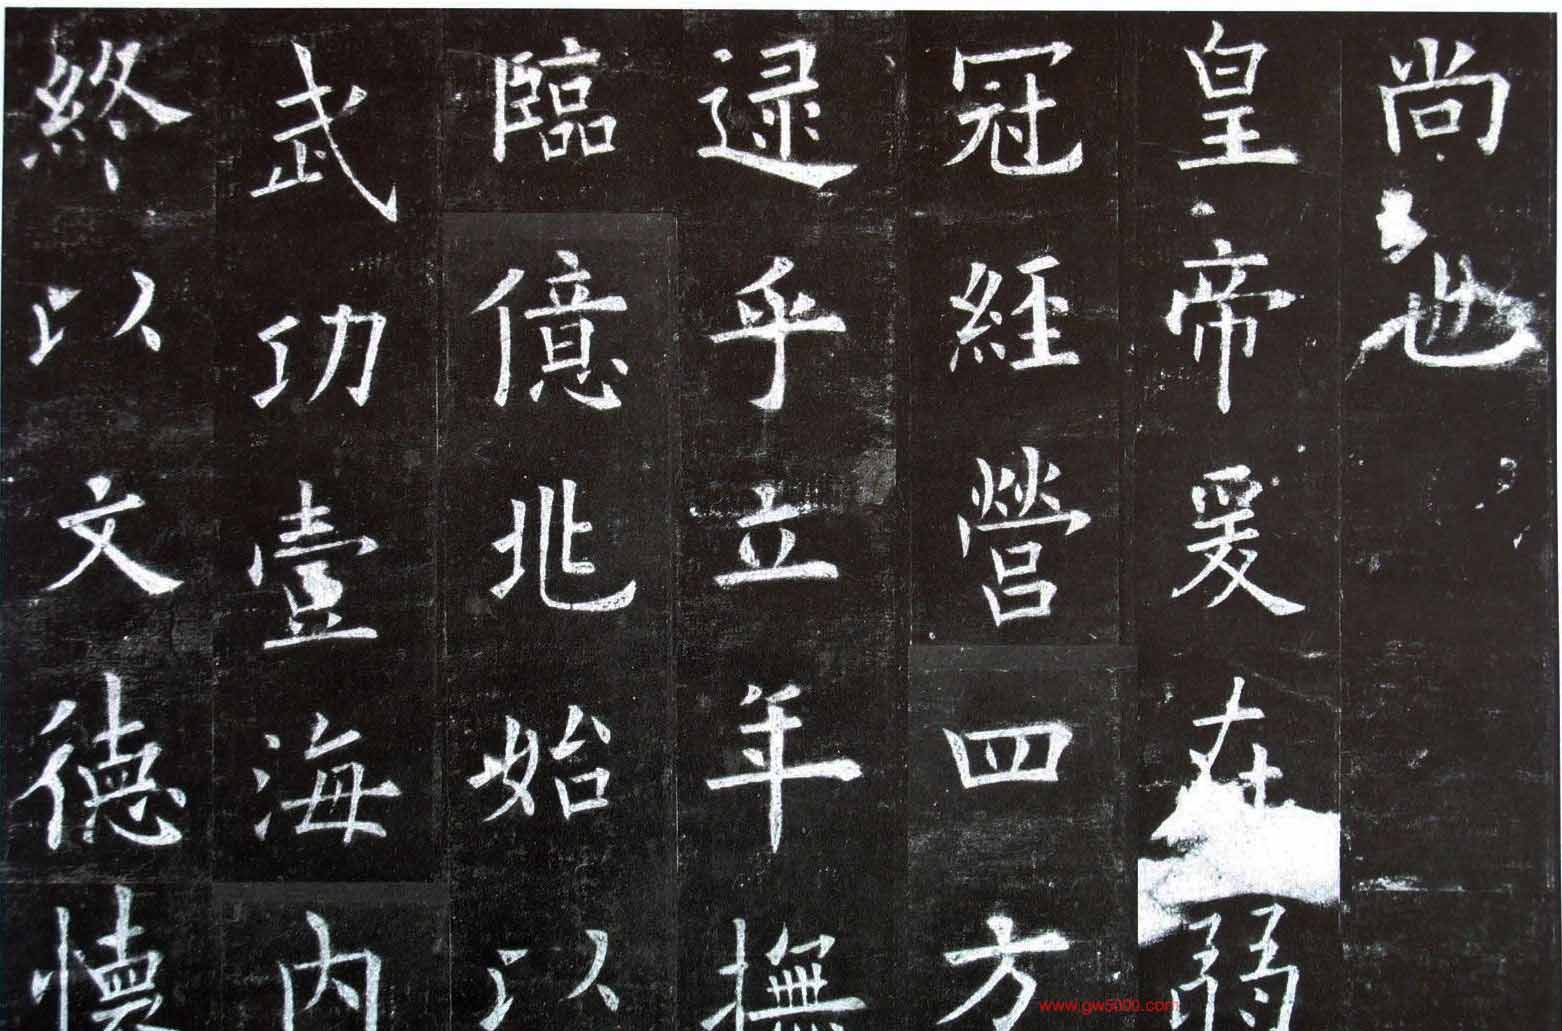 尚也
皇帝爰在弱
冠經營四方
逯乎立年撫
臨億兆始以
武功壹海內
終以文德懷
www.gw5000.com